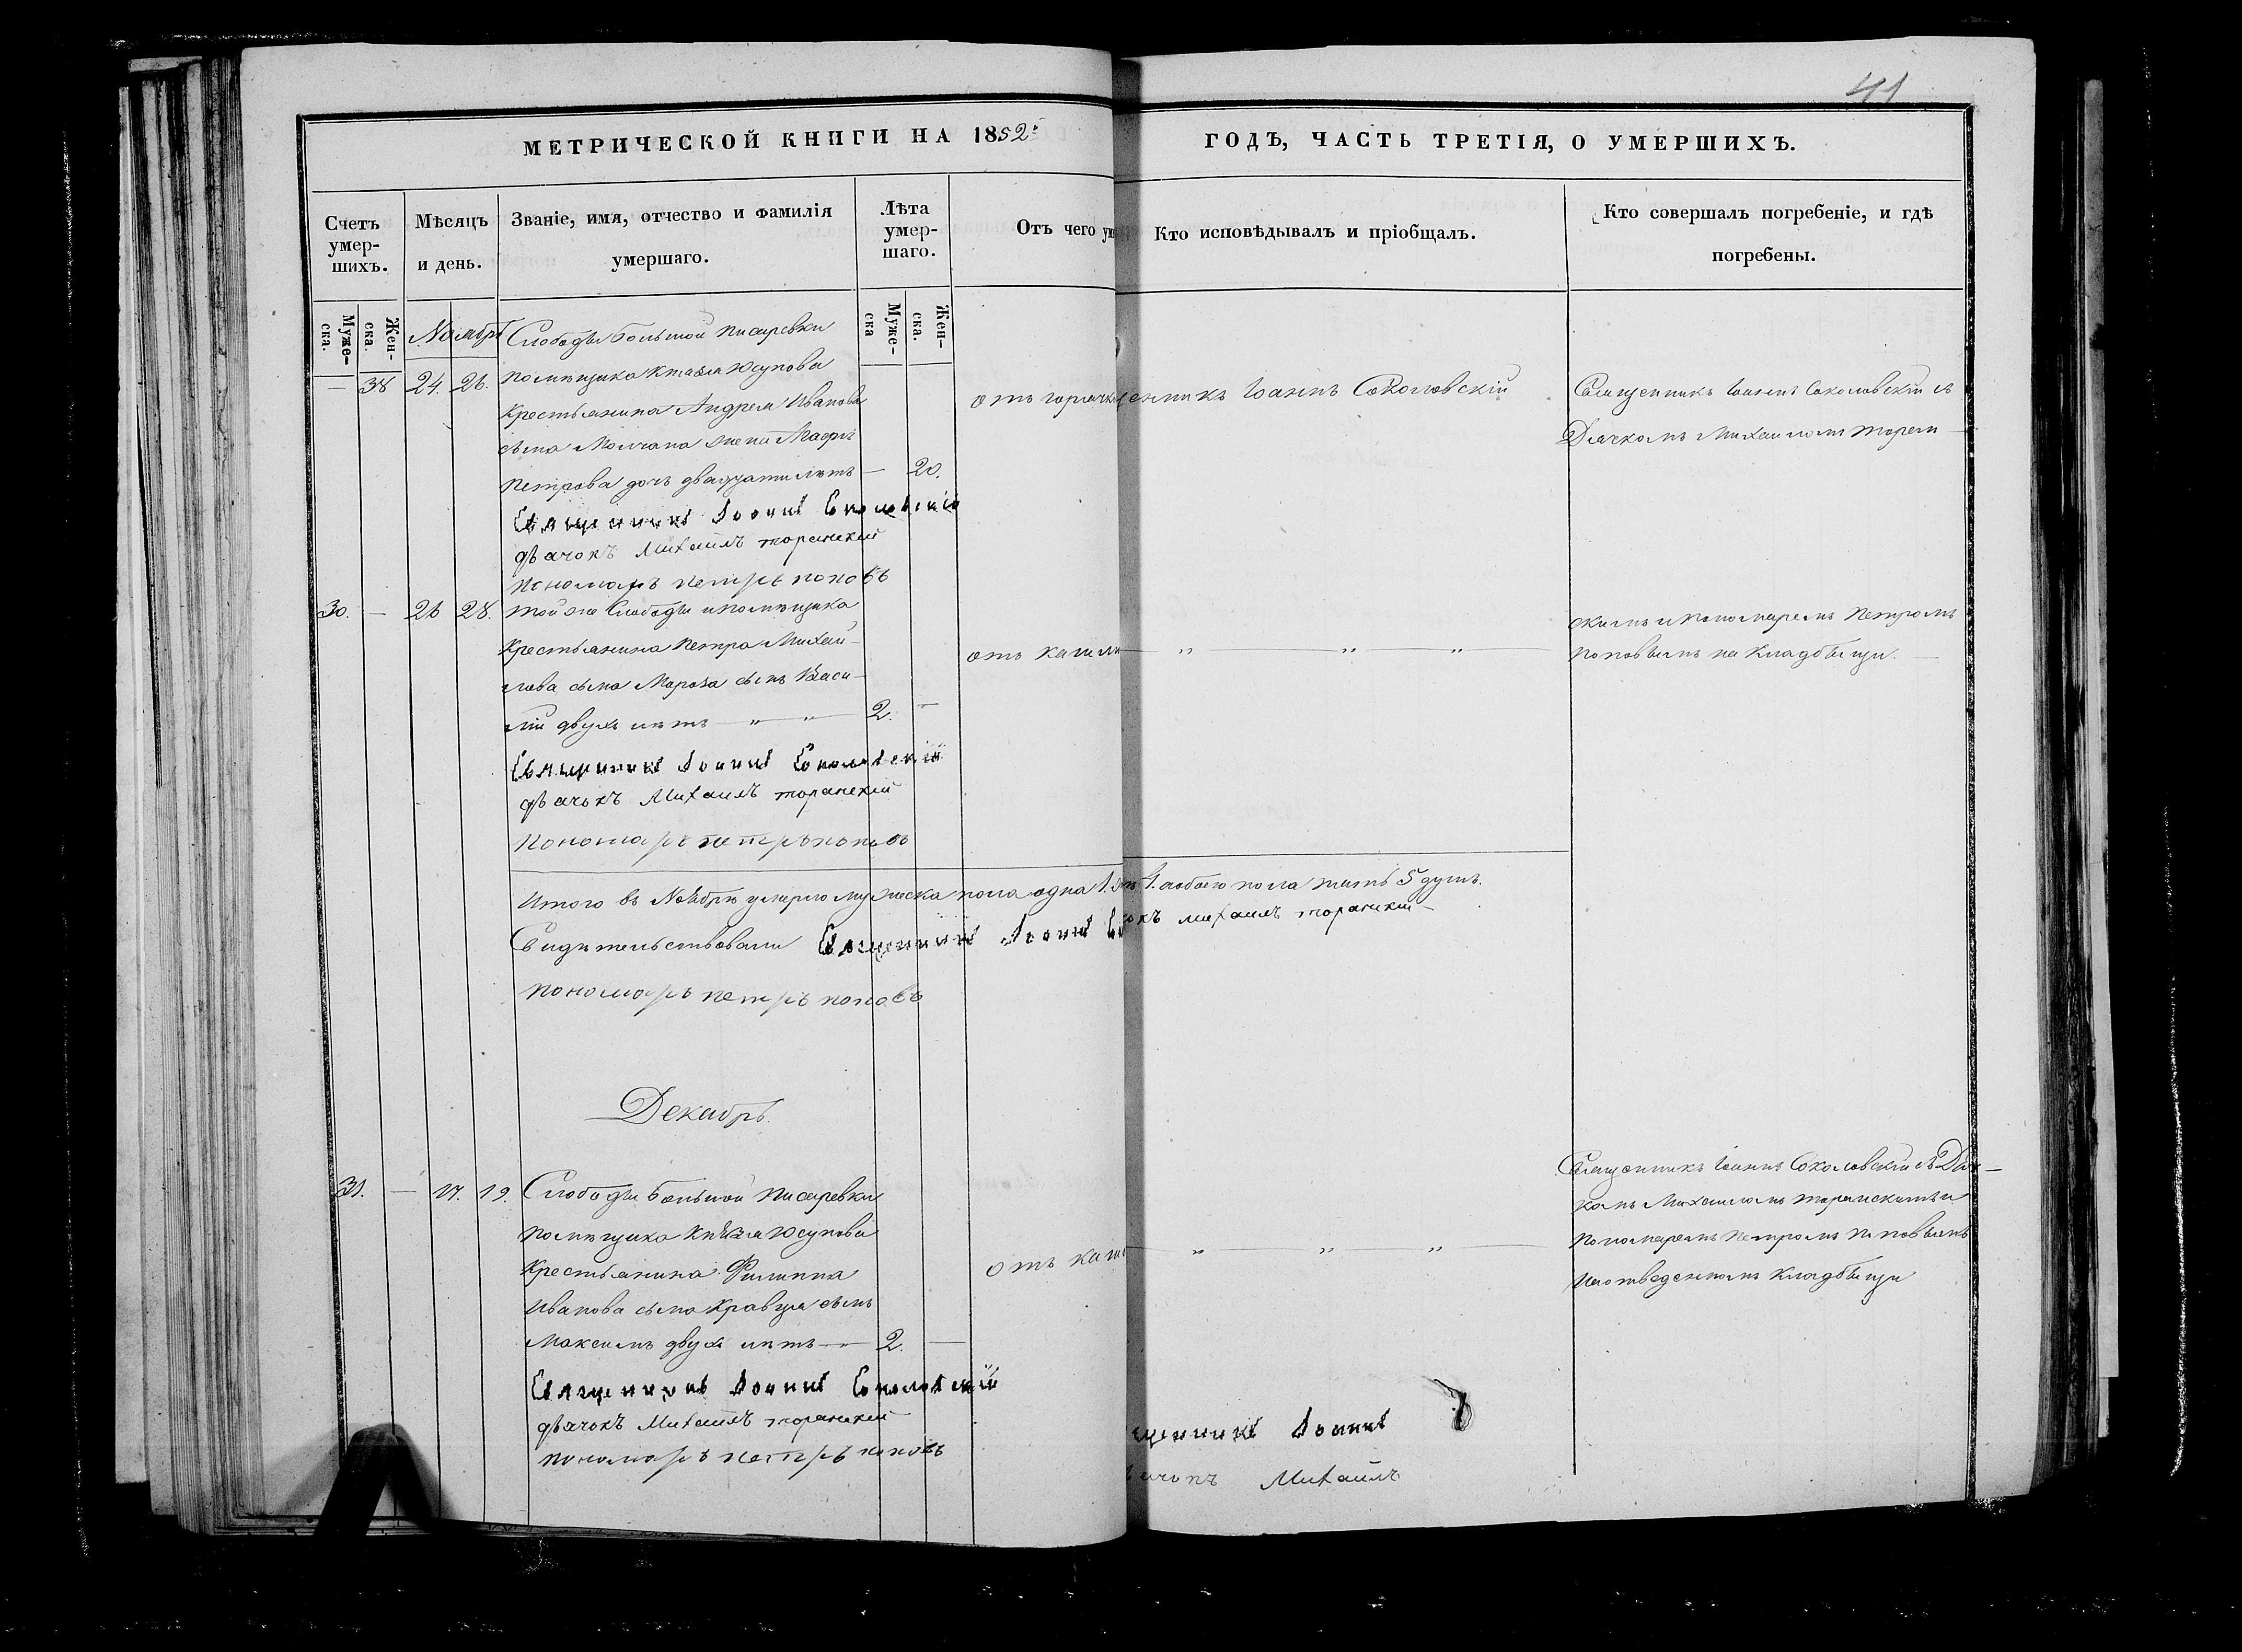 41
МЕТРИЧЕСКОЙ КНИГИ НА 1852
ГОДЪ, ЧАСТЬ ТРЕТІЯ, О УМЕРШИХЪ.
Счетъ умер-шихъ.
Мѣсяцъ и день.
Званіе, имя, отчество и фамилія умершаго.
Лѣта умер-шаго.
Отъ чего
Кто исповѣдывалъ и пріобщалъ.
Кто совершалъ погребеніе, и гдѣ погребены.
Муже-ска.
Жен-ска.
Муже-ска
Жен-ска.
Ноябрь
Слободы Большой Писаревки
— 38 24. 26. помѣщика Князя Юсупова
крестьянина Андрея Иванова
сына Молчана жена Марфа
Петрова дочь двадцати лѣтъ — 20.
отъ горячк
Іоаннъ Соколовскій
Священникъ Іоаннъ Соколовскій съ
Дьячкомъ Михаиломъ Торан
Священникъ Іоаннъ Соколовскій
дьячокъ Михаилъ Торанскій
Пономарь Петръ Поповъ
30. — 26 28. Той же Слободы и помѣщика
крестьянина Петра Михай-
лова сына Мороза сынъ Васи-
лій двухъ лѣтъ — " — " — 2. —
отъ кашл
— " — " — " —
скимъ и Пономаремъ Петромъ
Поповымъ на кладбищи. —
Священникъ Іоаннъ Соколовскій
дьячокъ Михаилъ Торанскій
Пономарь Петръ Поповъ
Итого въ Ноябрѣ умерло мужеска пола одна 1. 4. обоего пола пять 5 душъ.
Свидѣтельствовали Священникъ Іоаннъ
окъ Михаилъ Торанскій
Пономарь Петръ Поповъ
Декабрь.
31. — 17. 19. Слободы Большой Писаревки
помѣщика Князя Юсупова
крестьянина Филиппа
Иванова сына Кравца сынъ
Максимъ двухъ лѣтъ — 2. —
отъ каш
— " — " — " —
Священникъ Іоаннъ Соколовскій съ Дьяч-
комъ Михаиломъ Торанскимъ и
Пономаремъ Петромъ Поповымъ
На отведенномъ кладбищи
Священникъ Іоаннъ Соколовскій
дьячокъ Михаилъ Торанскій
Пономарь Петръ Поповъ
щенникъ Іоаннъ
ячокъ Михаилъ